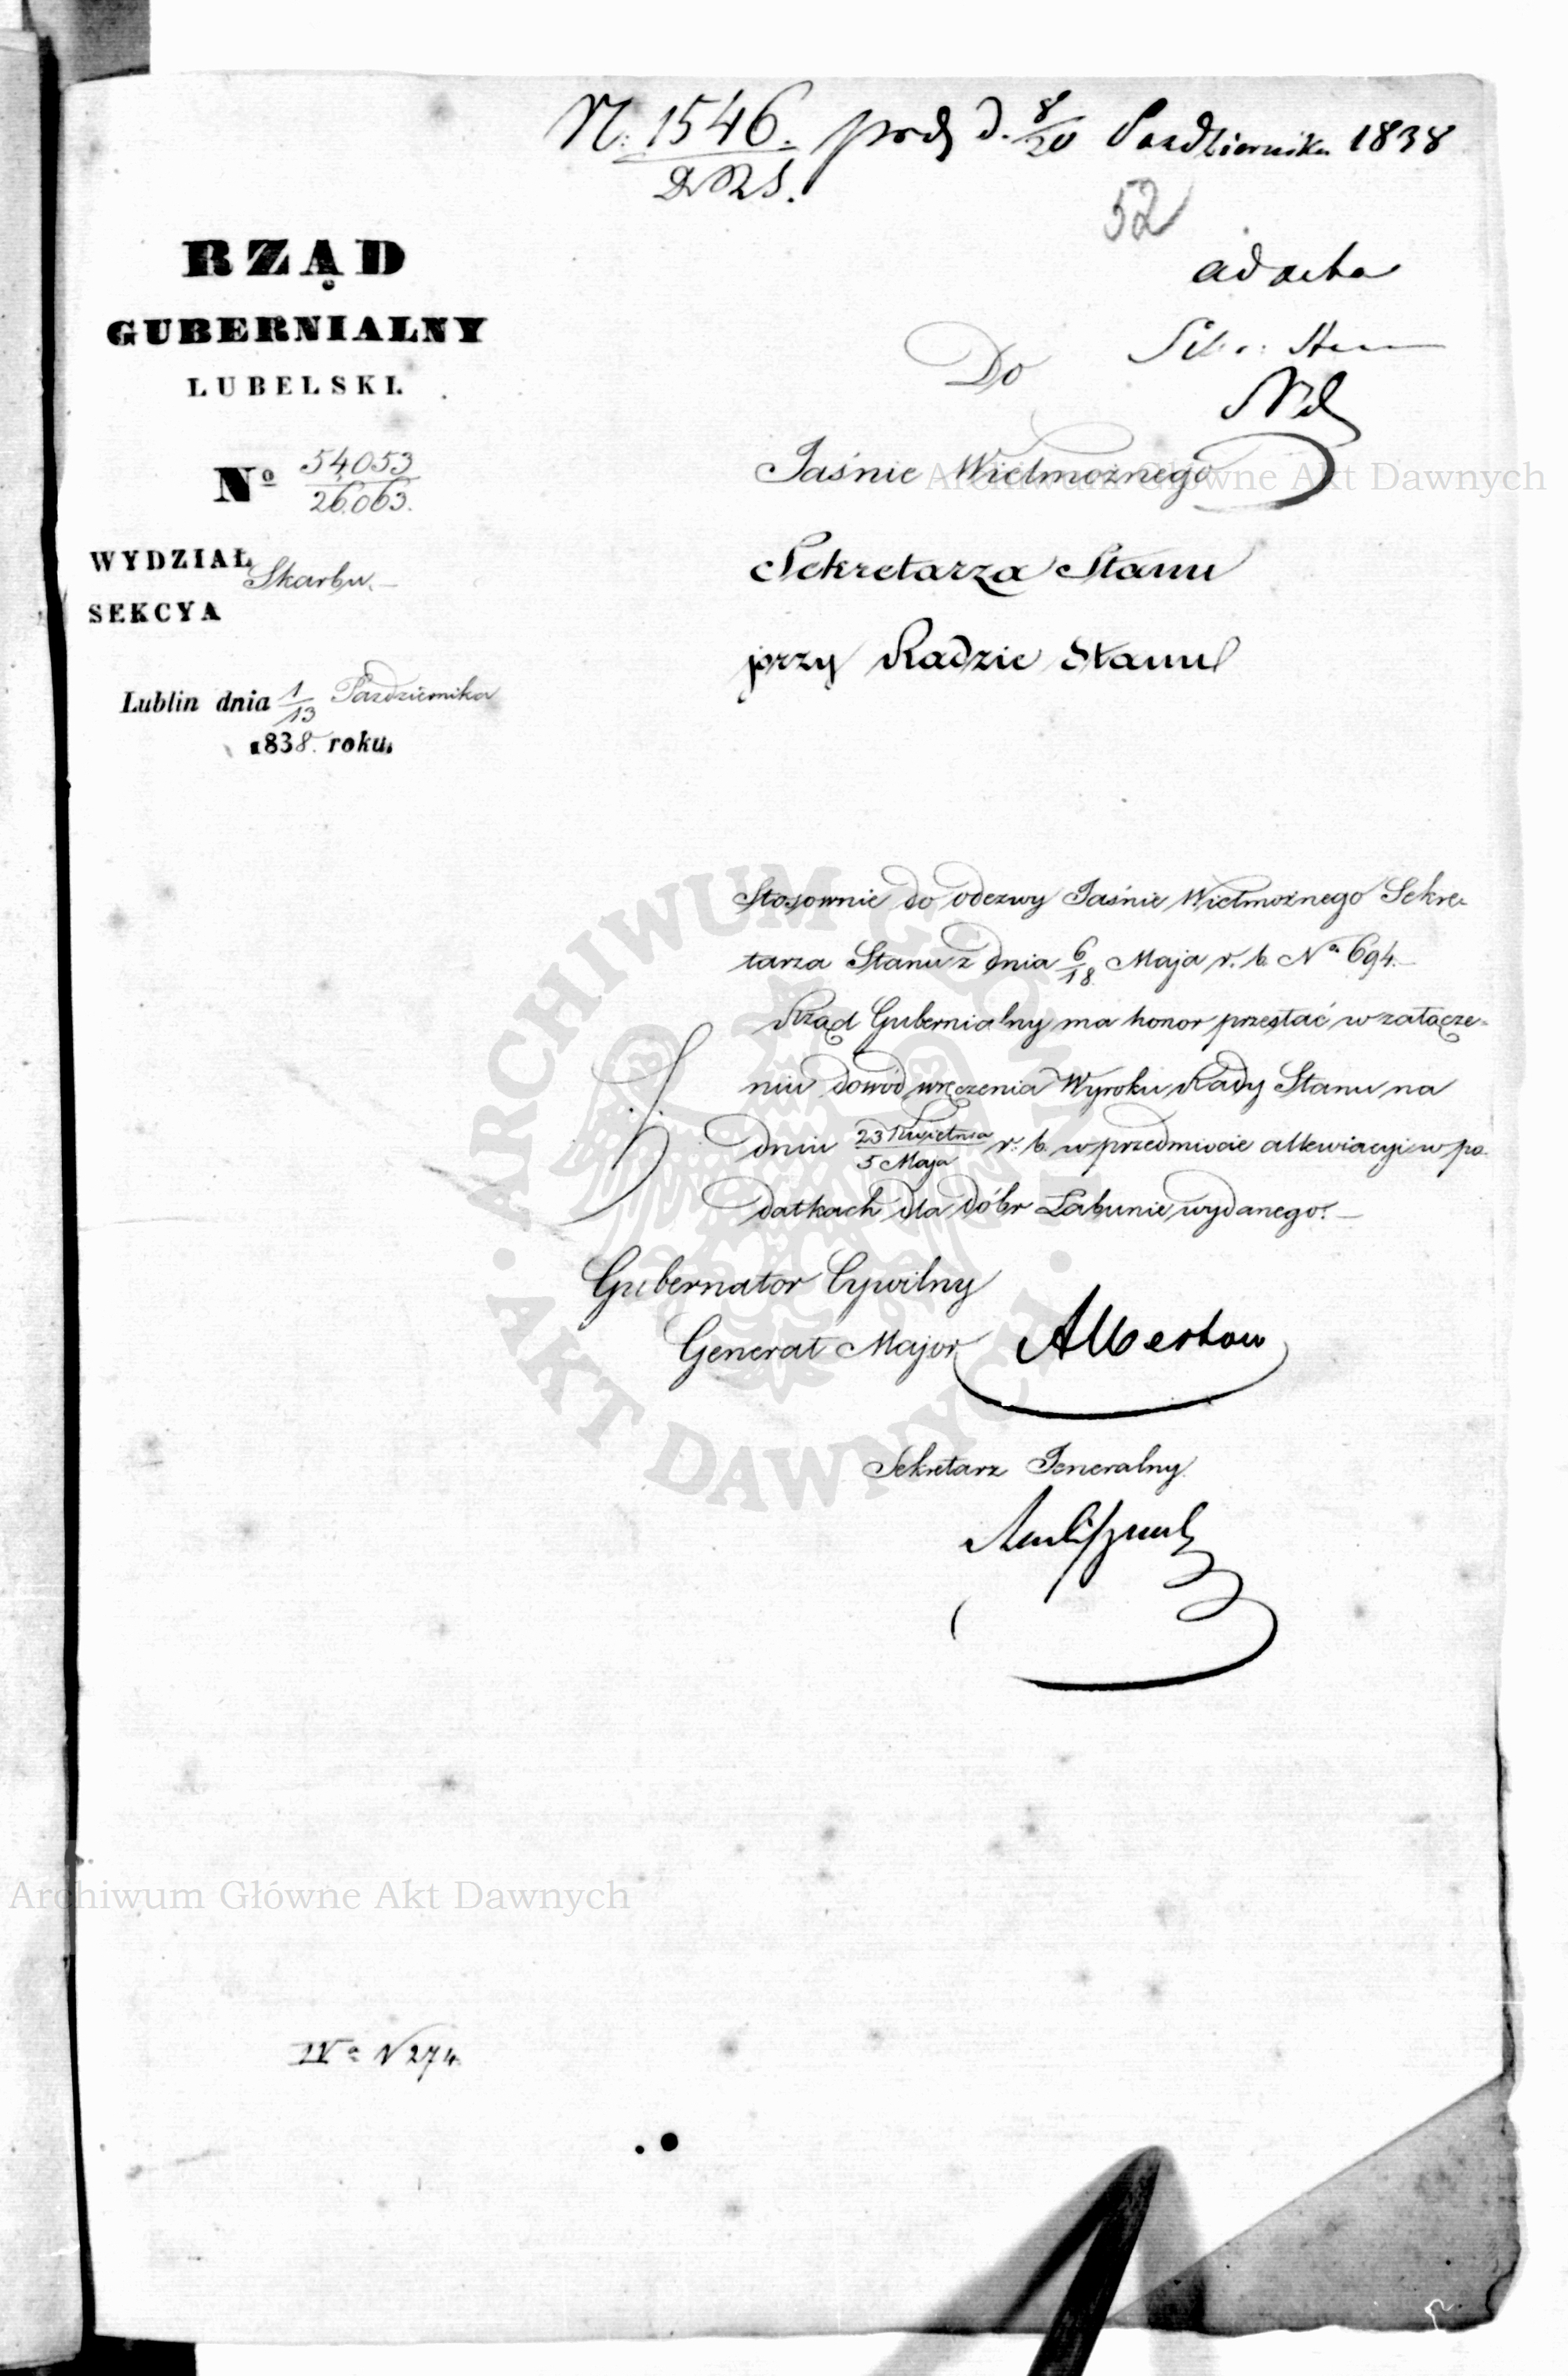 N. 1546. d. 8/20 Pazdziernika 1838
52
ad acta
RZĄD
GUBERNIALNY
LUBELSKI.
Do
Nº 54,053/26,063.
Jaśnie Wielmożnego
Archiwum Główne Akt Dawnych
WYDZIAŁ Skarbu.
SEKCYA
Sekretarza Stanu
przy Radzie Stanu
Lublin dnia 1/13 Pazdziernika
1838. roku.
Stosownie do odezwy Jaśnie Wielmożnego Sekre-
tarza Stanu z dnia 6/18 Maja r. b. Nº 694.
Rząd Gubernialny ma honor przesłać w załącze-
niu dowód wręczenia Wyroku Rady Stanu na
dniu 23 Kwietnia/5 Maja r. b. w przedmiocie allewiacyi w po-
datkach dla dóbr Łabunie wydanego.
Gubernator Cywilny
Generał Major Albertow
Sekretarz Jeneralny
ARCHIWUM GŁÓWNE AKT DAWNYCH
Archiwum Główne Akt Dawnych
IV N 274